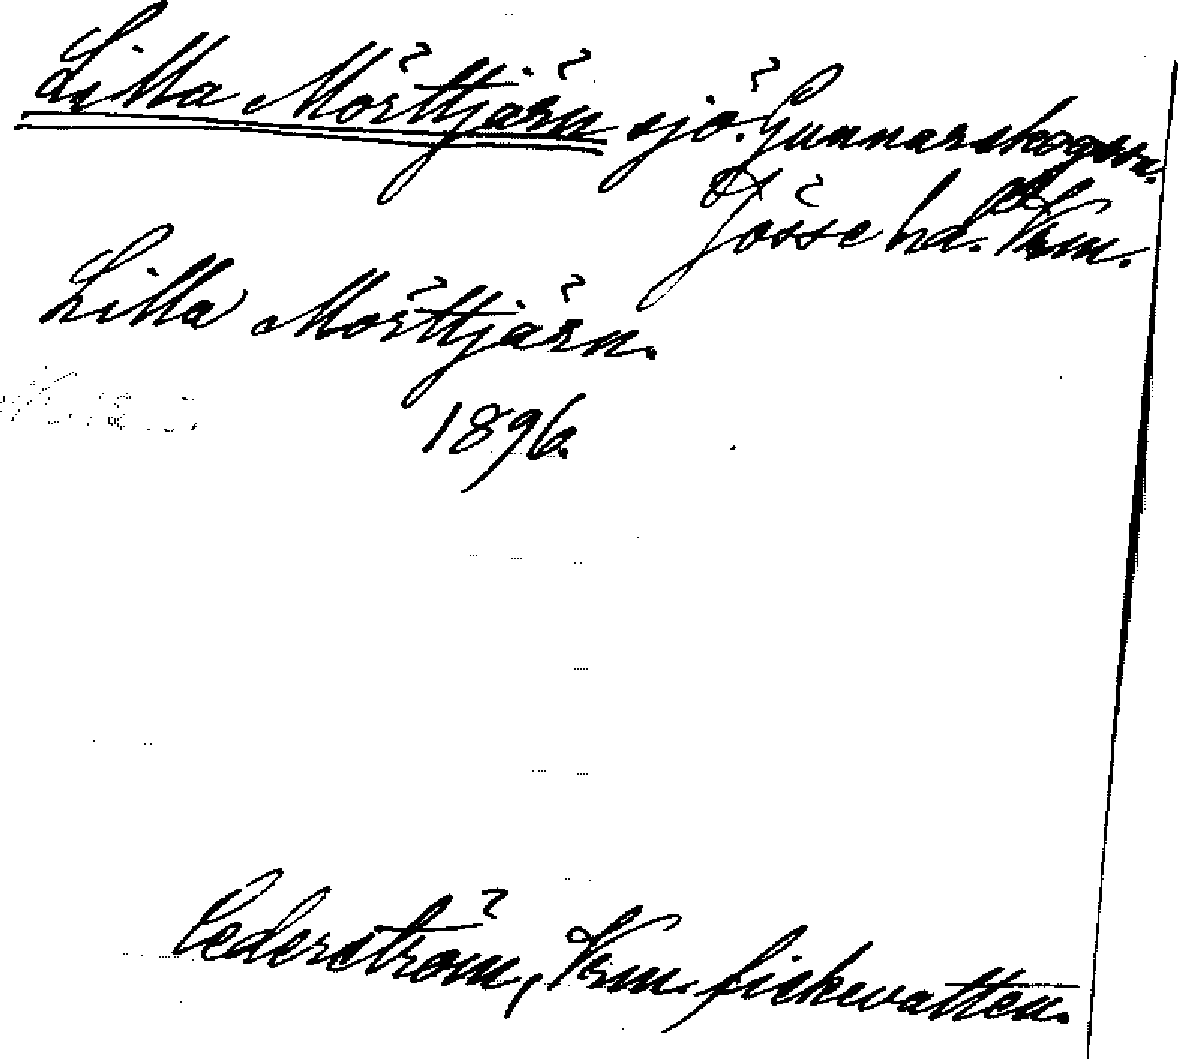 Lilla Mörttjärn sjö. Gunnarskogssn.
Jösse hd. Vrm.
Lilla Mörttjärn.
1896.
Cederström, Vrm. fiskevatten.